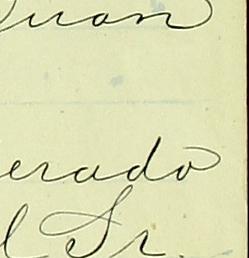 Juan
erado
l Sr.